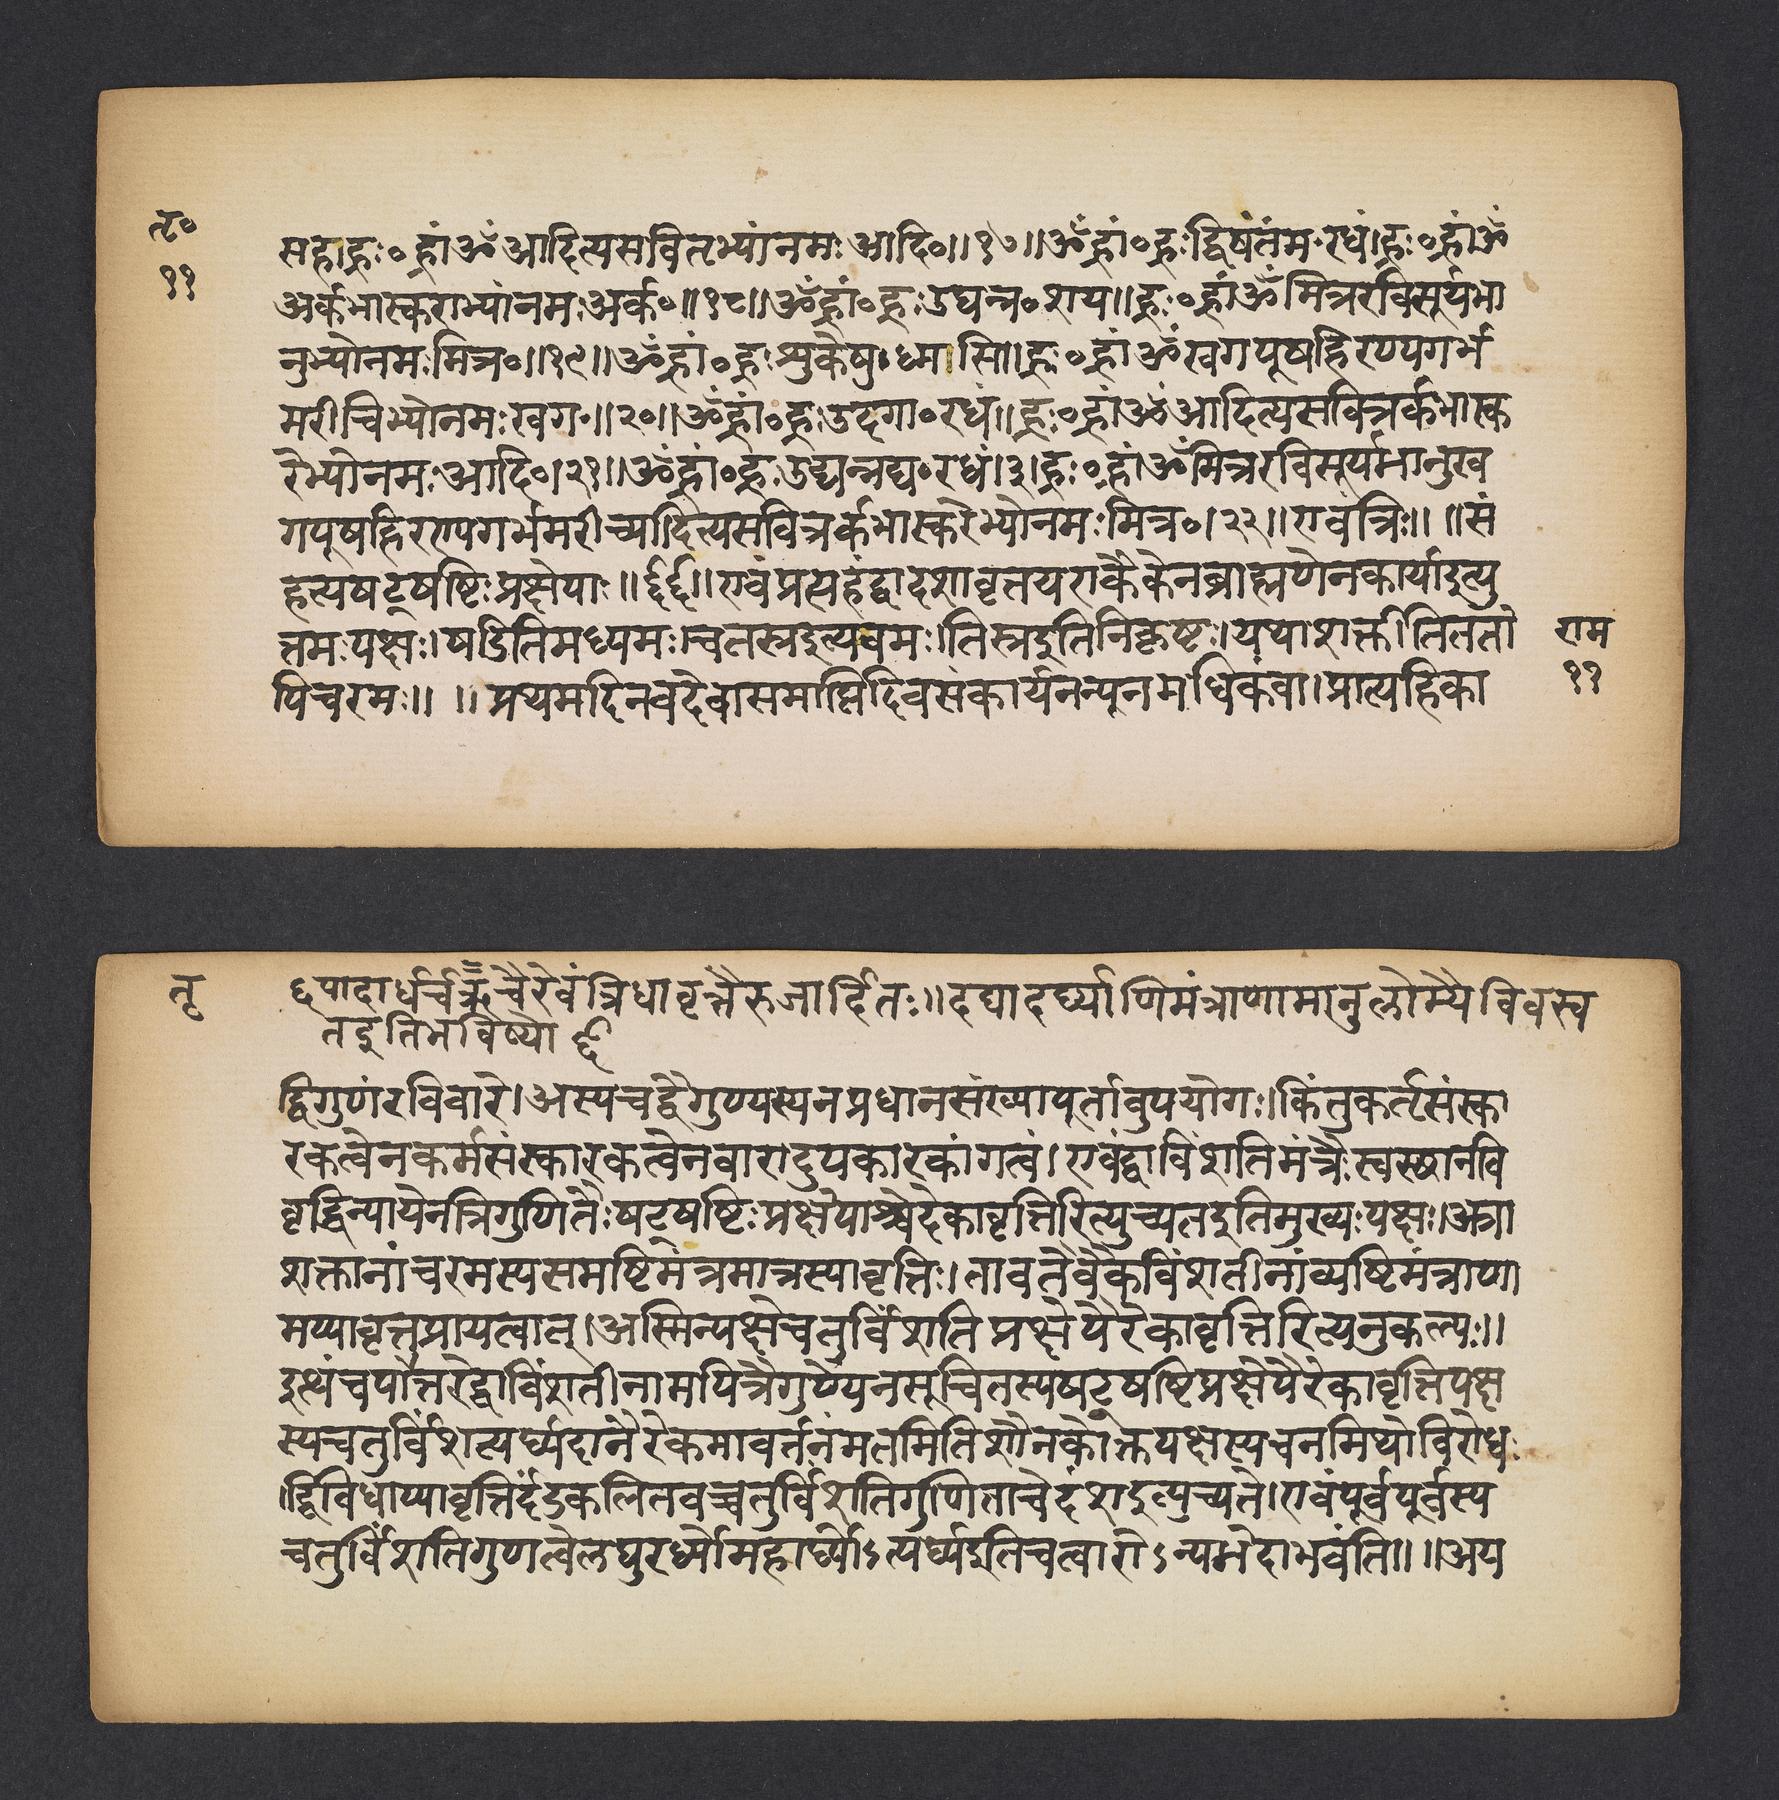 तृ०
११
सह।ह्रः०ह्रांॐआदित्यसवितृभ्यांनमः आदि०॥१७॥ॐह्रां०ह्रःद्विषंतंम०रधं।ह्रः०ह्रांॐ
अर्कभास्कराभ्यांनमःअर्क०॥१८॥ॐह्रां०ह्रःउद्यन्न०शय॥ह्रः०ह्रांॐमित्ररविसूर्यभा
नुभ्योनमःमित्र०॥१९॥ॐह्रां०ह्रःशुकेषु०ध्मसि॥ह्रः०ह्रांॐखगपूषहिरण्यगर्भ
मरीचिभ्योनमःखग०॥२०॥ॐह्रां०ह्रःउदगा०रधं॥ह्रः०ह्रांॐआदित्यसवित्रर्कभास्क
रेभ्योनमःआदि०।२१॥ॐह्रां०ह्रःउद्यन्नद्य०रधं।३।ह्रः०ह्रांॐमित्ररविसूर्यभानुख
गपूषहिरण्यगर्भमरीच्यादित्यसवित्रर्कभास्करेभ्योनमःमित्र०।२२॥एवंत्रिः॥ ॥सं
हत्यषट्षष्टिःप्रक्षेपाः॥६६॥एवंप्रत्यहंद्वादशावृत्तयएकैकेनब्राह्मणेनकार्याइत्यु
त्तमःपक्षः।षडितिमध्यमः।चतस्रइत्यवमः।तिस्रइतिनिकृष्टः।यथाशक्तीतिततो
पिचरमः॥ ॥प्रथमदिनवदेवासमाप्तिदिवसंकार्यंनन्यूनमधिकंवा।प्रात्यहिका
राम
११
तृ
६पादार्धर्चऋचैरेवंत्रिधावृत्तैरुजार्दितः॥दद्यादर्घ्याणिमंत्राणामानुलोम्यैविवस्व
तइतिभविष्यो ६
द्विगुणंरविवारे।अस्यचद्वैगुण्यस्यनप्रधानसंख्यापूर्तावुपयोगः।किंतुकर्तृसंस्का
रकत्वेनकर्मसंस्कारकत्वेनवाराादुपकारकांगत्वं।एवंद्वाविंशतिमंत्रैःस्वस्थानवि
वृद्धिन्यायेनत्रिगुणितैःषट्षष्टिःप्रक्षेपाश्चेदेकावृत्तिरित्युच्यतइतिमुख्यःपक्षः।अत्रा
शक्तानांचरमस्यसमष्टिमंत्रमात्रस्यावृत्तिः।तावतैवैकविंशतीनांव्यष्टिमंत्राणा
मप्यावृत्तप्रायत्वात्।अस्मिन्पक्षेचतुर्विंशतिप्रक्षेपैरेकावृत्तिरित्यनुकल्पः॥
इत्थंचपात्तरेद्वाविंशतीनामपित्रैगुण्येनसूचितस्यषट्षष्टिप्रक्षेपैरेकावृत्तिपक्ष
स्यचतुर्विंशत्यर्घ्यदानैरेकमावर्त्तनंमतमितिशौनकोक्तपक्षस्यचनमिथोविरोधः
।द्विविधाप्यावृत्तिर्दंडकलितवच्चतुर्विंशतिगुणिताचेदंशइत्युच्यते।एवंपूर्वपूर्वस्य
चतुर्विंशतिगुणत्वेलघुरर्घ्योमहार्घ्योऽत्यर्घ्यइतिचत्वारोऽन्यभेदाभवंति॥ ॥अथ